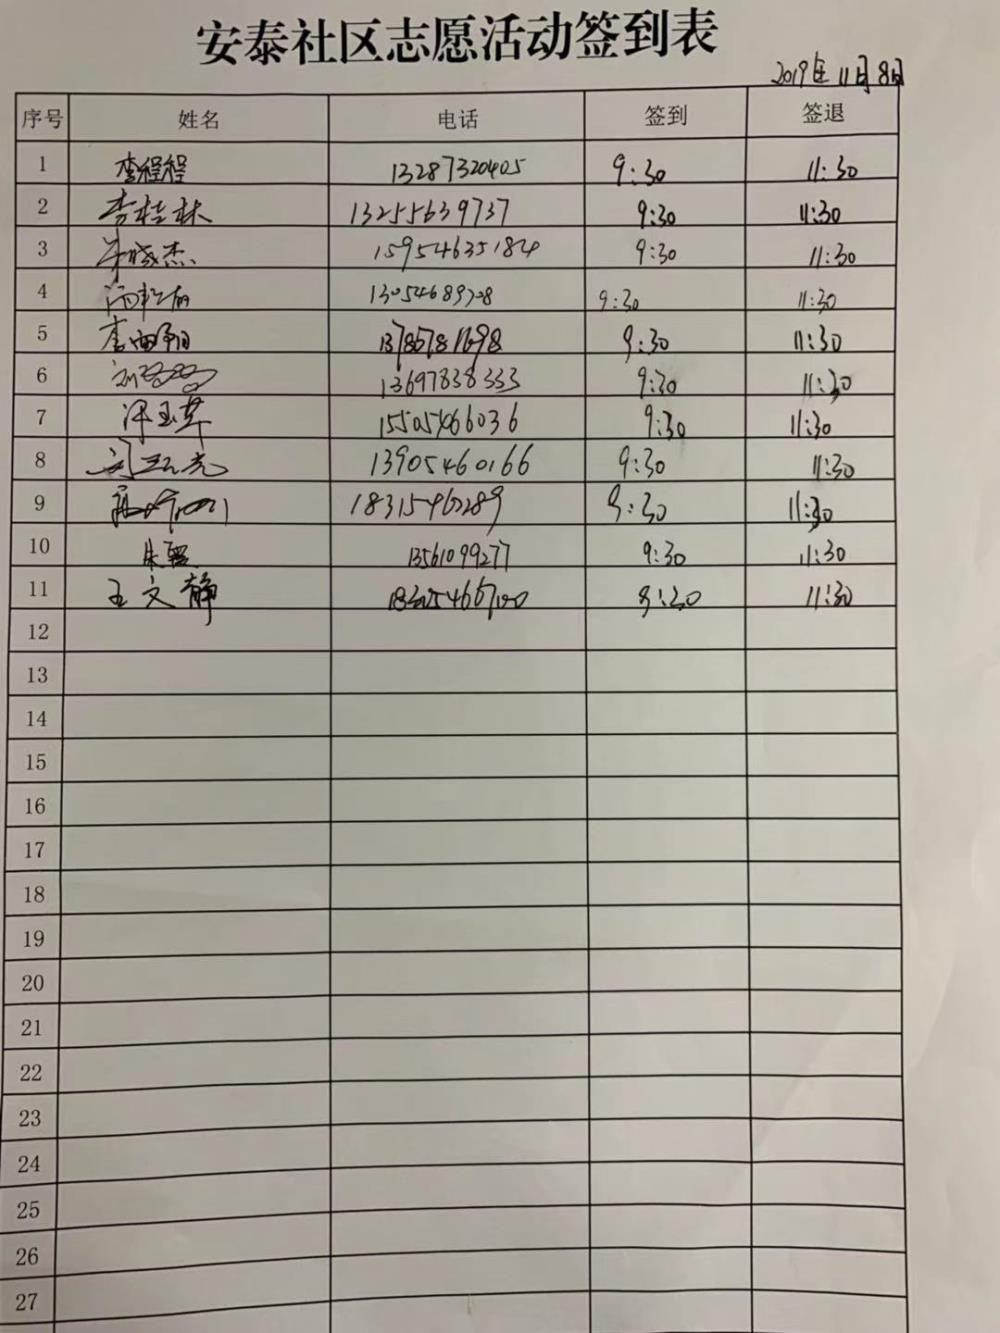 安泰社区志愿活动签到表
2019年11月8日
序号 姓名 电话 签到 签退
1 李程程 13287320405 9:30 11:30
2 李桂林 13255639737 9:30 11:30
3 15954635184 9:30 11:30
4 9:30 11:30
5 9:30 11:30
6 13697838333 9:30 11:30
7 15505466036 9:30 11:30
8 13905460166 9:30 11:30
9 9:30 11:30
10 13561099277 9:30 11:30
11 王文静 9:30 11:30
12
13
14
15
16
17
18
19
20
21
22
23
24
25
26
27